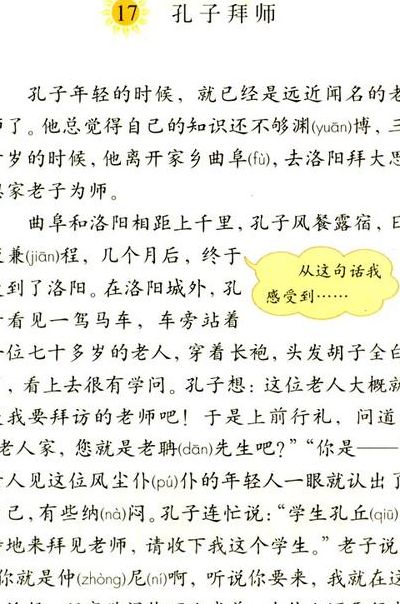 17 孔子拜师
孔子年轻的时候，就已经是远近闻名的老
师了。他总觉得自己的知识还不够渊(yuān)博，三
十岁的时候，他离开家乡曲阜(fù)，去洛阳拜大思
想家老子为师。
曲阜和洛阳相距上千里，孔子风餐露宿，日
夜兼(jiān)程，几个月后，终于
从这句话我
感受到……
走到了洛阳。在洛阳城外，孔
子看见一驾马车，车旁站着
一位七十多岁的老人，穿着长袍，头发胡子全白
，看上去很有学问。孔子想：这位老人大概就
是我要拜访的老师吧！于是上前行礼，问道
老人家，您就是老聃(dān)先生吧？”“你是——
人见这位风尘仆(pú)仆的年轻人一眼就认出了
己，有些纳(nà)闷。孔子连忙说：“学生孔丘(qiū)
地来拜见老师，请收下我这个学生。”老子说
你就是仲(zhòng)尼(ní)啊，听说你要来，我就在这